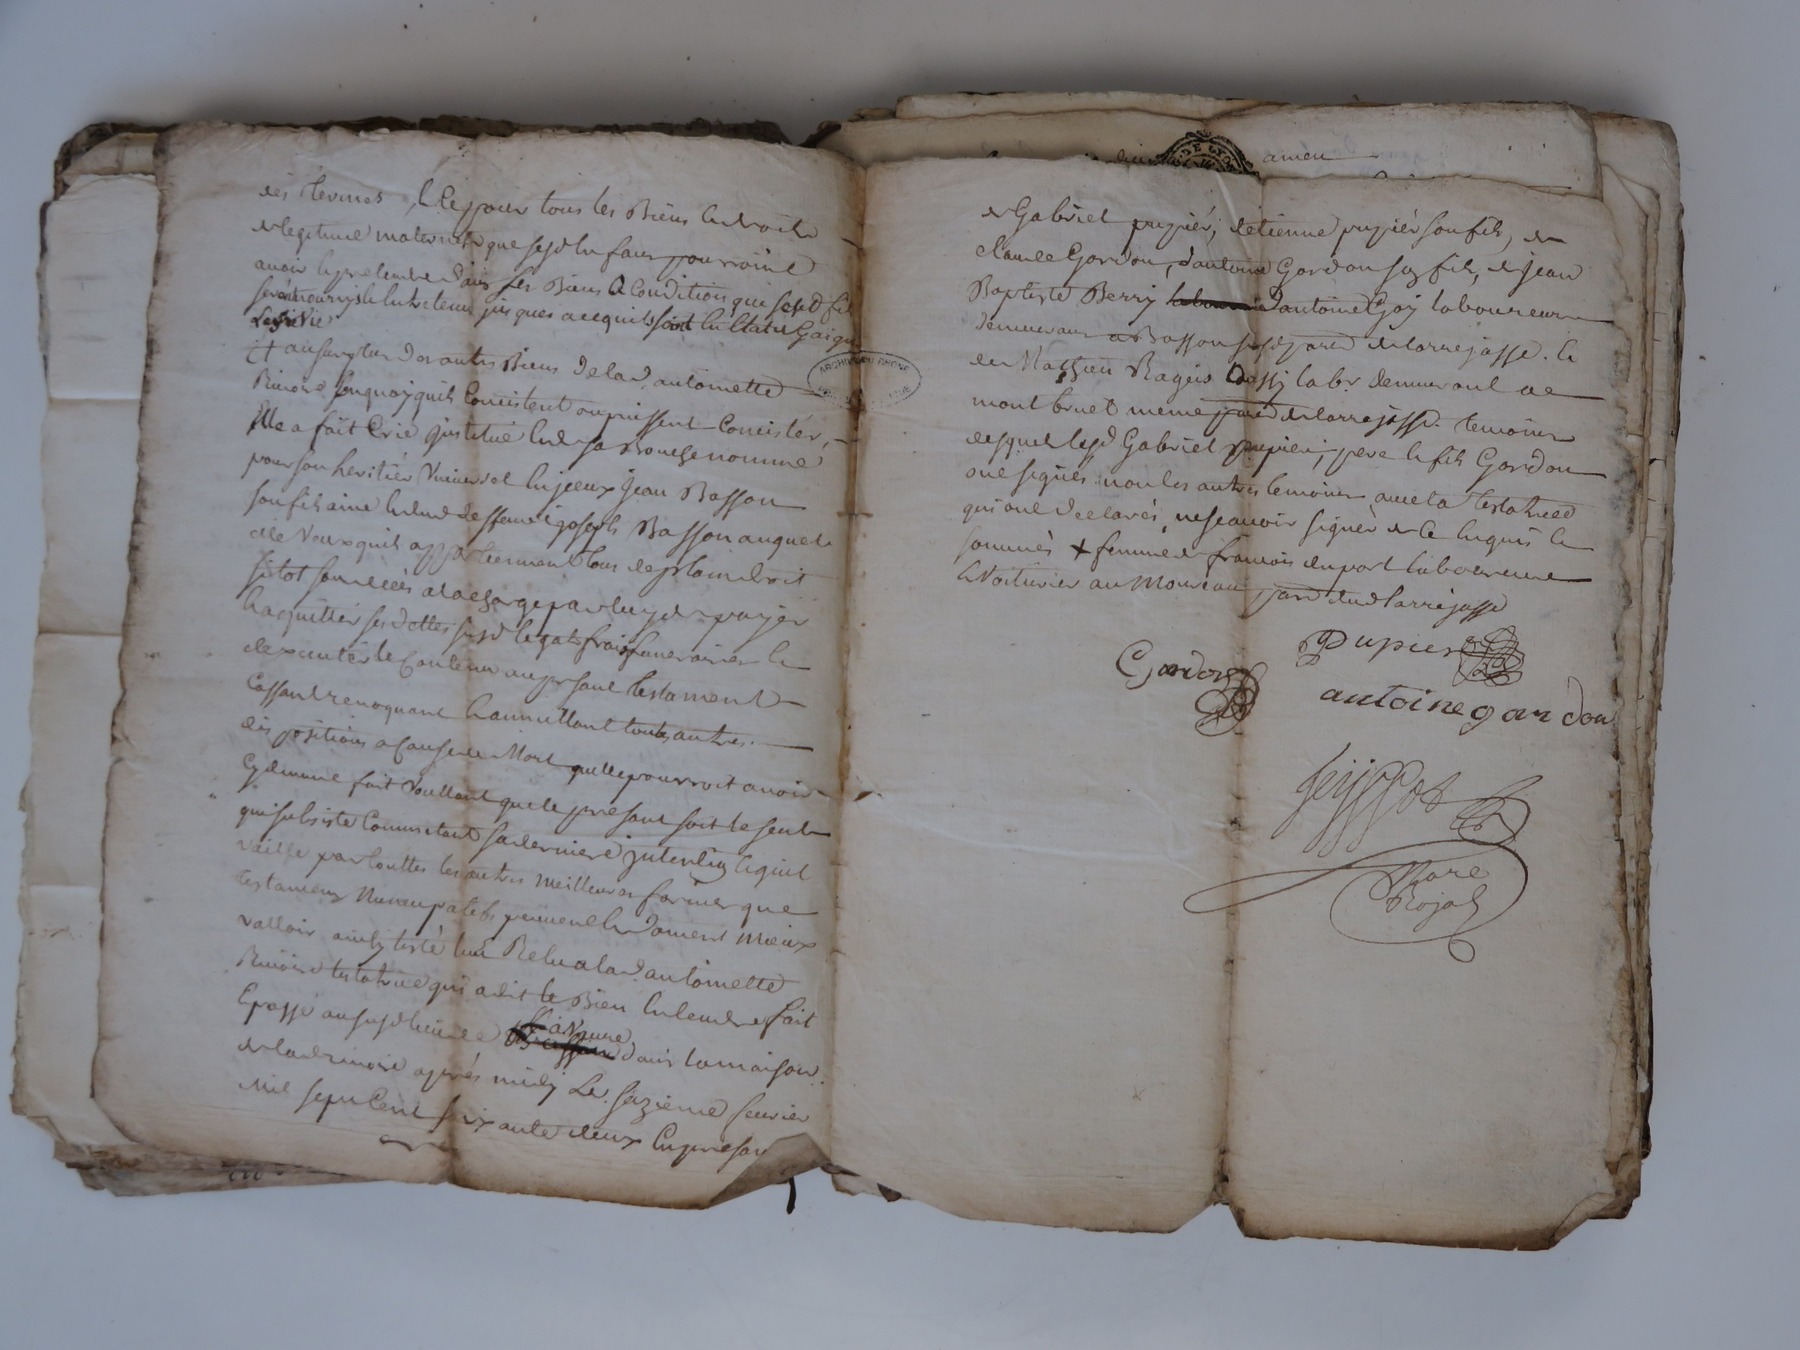 des termes, & ce pour tous les Biens et droits
de legitime maternelle que sesd. enfans pourroint
avoir & pretendre dans ses Biens a Condition que sesd fils
seront nourrys & entretenus jusques a ce quils soient en l'etat Gaigner
Leur Vie
+ au surplus dor autres Biens de lad. antoinette
Rinoire en quoy quils Concistent ou puissent Concister,
Elle a fait Crée institué et de sa Bouche nommé
pour son heritier Universel Jean Basson
son fils ainé et dud deffunt joseph Basson auquel
elle Veux quils appartiennent tous de plain droit
sitot son décés a la charge par luy de payer
& acquitter ses dettes susd legats frais funeraires &
dexecuter le Contenu au présent testament
Cassant revoquant & annullant toutes autres
dispositions a Cause de Mort quelle pourroit avoir
Cydevant fait Voullant que le present soit le seul
qui subsiste Contenant sa derniere intention & quil
vaille par touttes les autres meilleures formes que
testamens Nuncupatifs peuvent & doivent Mieux
valloir ainsy testé leu Relu a lad. antoinette
Rinoire testatrice qui a dit le Bien entendre fait
& passé au susd lieu de
dans la maison
de lad rinoire aprés midy Le sezieme fevrier
Mil sept Cent soixante deux En presan
DE LYON
amen
de Gabriel pupiér, detienne pupiér son fils, de
Claude Gordon, dantoine Gordon son fils, de Jean
Baptiste Berry dantoine Goy laboureurs
demeurans a Basson susd parr de larrajasse. &
de Mathieu Rageis aussy labr demeurant au
mont bruet meme parr de larrajasse. temoins
desquels lesd Gabriel pupier, pere & fils Gordon
ont signés non les autres temoins avec la testatrice
qui ont declarés ne scavoir signer de ce enquis &
sommés + femme de francois dupont laboureur
& Voiturier au Morceau parr dud larrajasse
Pupier
Gordon
antoine gordon
Nore
Royal
ARCHIVES DU RHONE